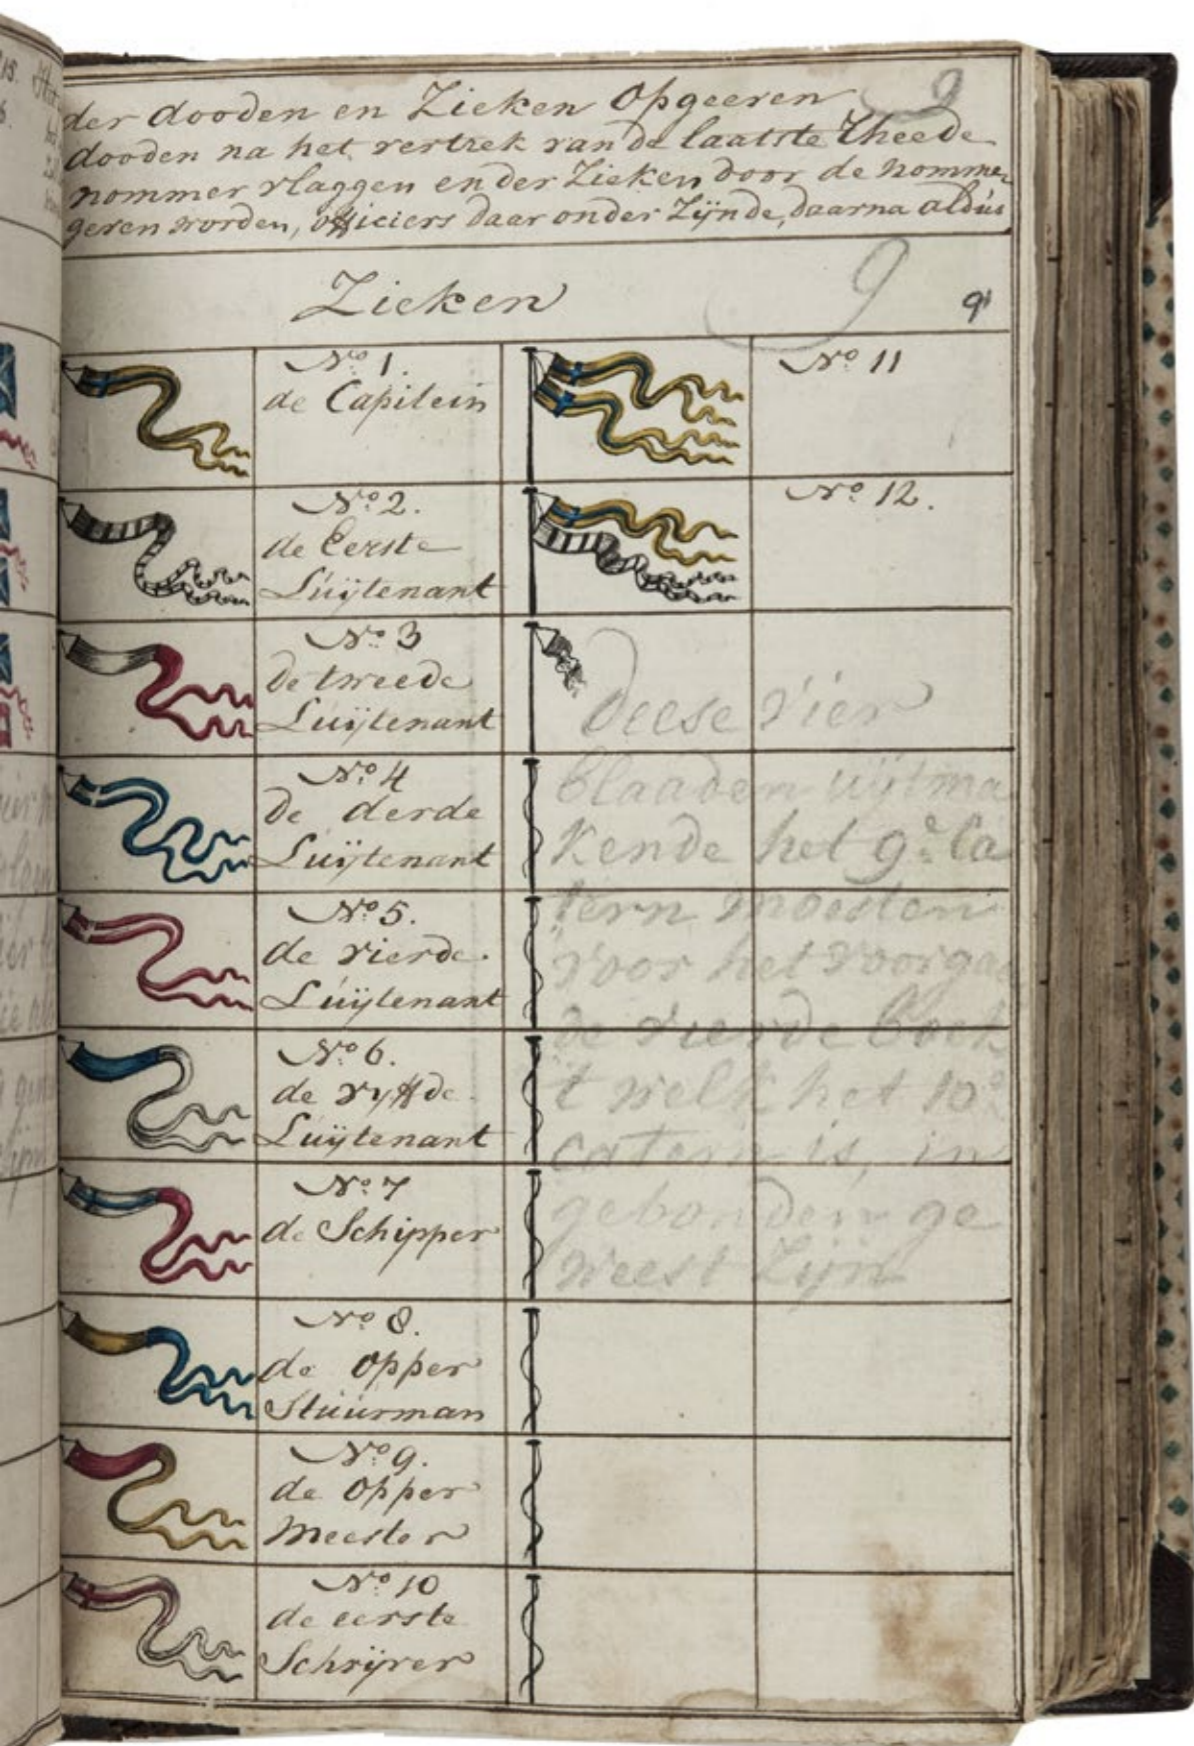 der dooden en Zieken Opgeeven 9
dooden na het vertrek van de laatste Rheede
nommer vlaggen en der Zieken door de nomme
geven worden, officiers daar onder Zÿnde, daarna aldús
Zieken 9 9
No. 1.
de Capitein
No. 2.
de Eerste
Lúÿtenant
No. 3
de tweede
Lúÿtenant
No. 4
de derde
Lúÿtenant
No. 5.
de vierde
Lúÿtenant
No. 6.
de vyffde
Lúÿtenant
No. 7
de Schipper
No. 8.
de opper
Stúúrman
No. 9.
de opper
Meester
No. 10
de eerste
Schrÿver
No. 11
No. 12.
deese vier
blaaden uÿtma
kende het 9e. ca
tern moesten
voor het voorgaa
de vierde boek
't welk het 10e
catern is, in
gebonden ge
weest Zijn